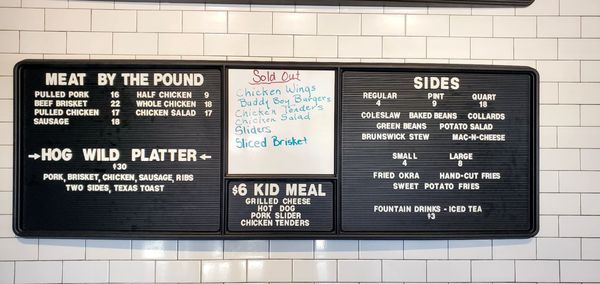 MEAT BY THE POUND
PULLED PORK 16 HALF CHICKEN 9
BEEF BRISKET 22 WHOLE CHICKEN 18
PULLED CHICKEN 17 CHICKEN SALAD 17
SAUSAGE 18
→HOG WILD PLATTER←
$30
PORK, BRISKET, CHICKEN, SAUSAGE, RIBS
TWO SIDES, TEXAS TOAST
Sold Out
Chicken Wings
Buddy Boy Bargers
Chicken Tenders
Chicken Salad
Sliders
Sliced Brisket
$6 KID MEAL
GRILLED CHEESE
HOT DOG
PORK SLIDER
CHICKEN TENDERS
SIDES
REGULAR PINT QUART
4 9 18
COLESLAW BAKED BEANS COLLARDS
GREEN BEANS POTATO SALAD
BRUNSWICK STEW MAC-N-CHEESE
SMALL LARGE
4 8
FRIED OKRA HAND-CUT FRIES
SWEET POTATO FRIES
FOUNTAIN DRINKS - ICED TEA
$3